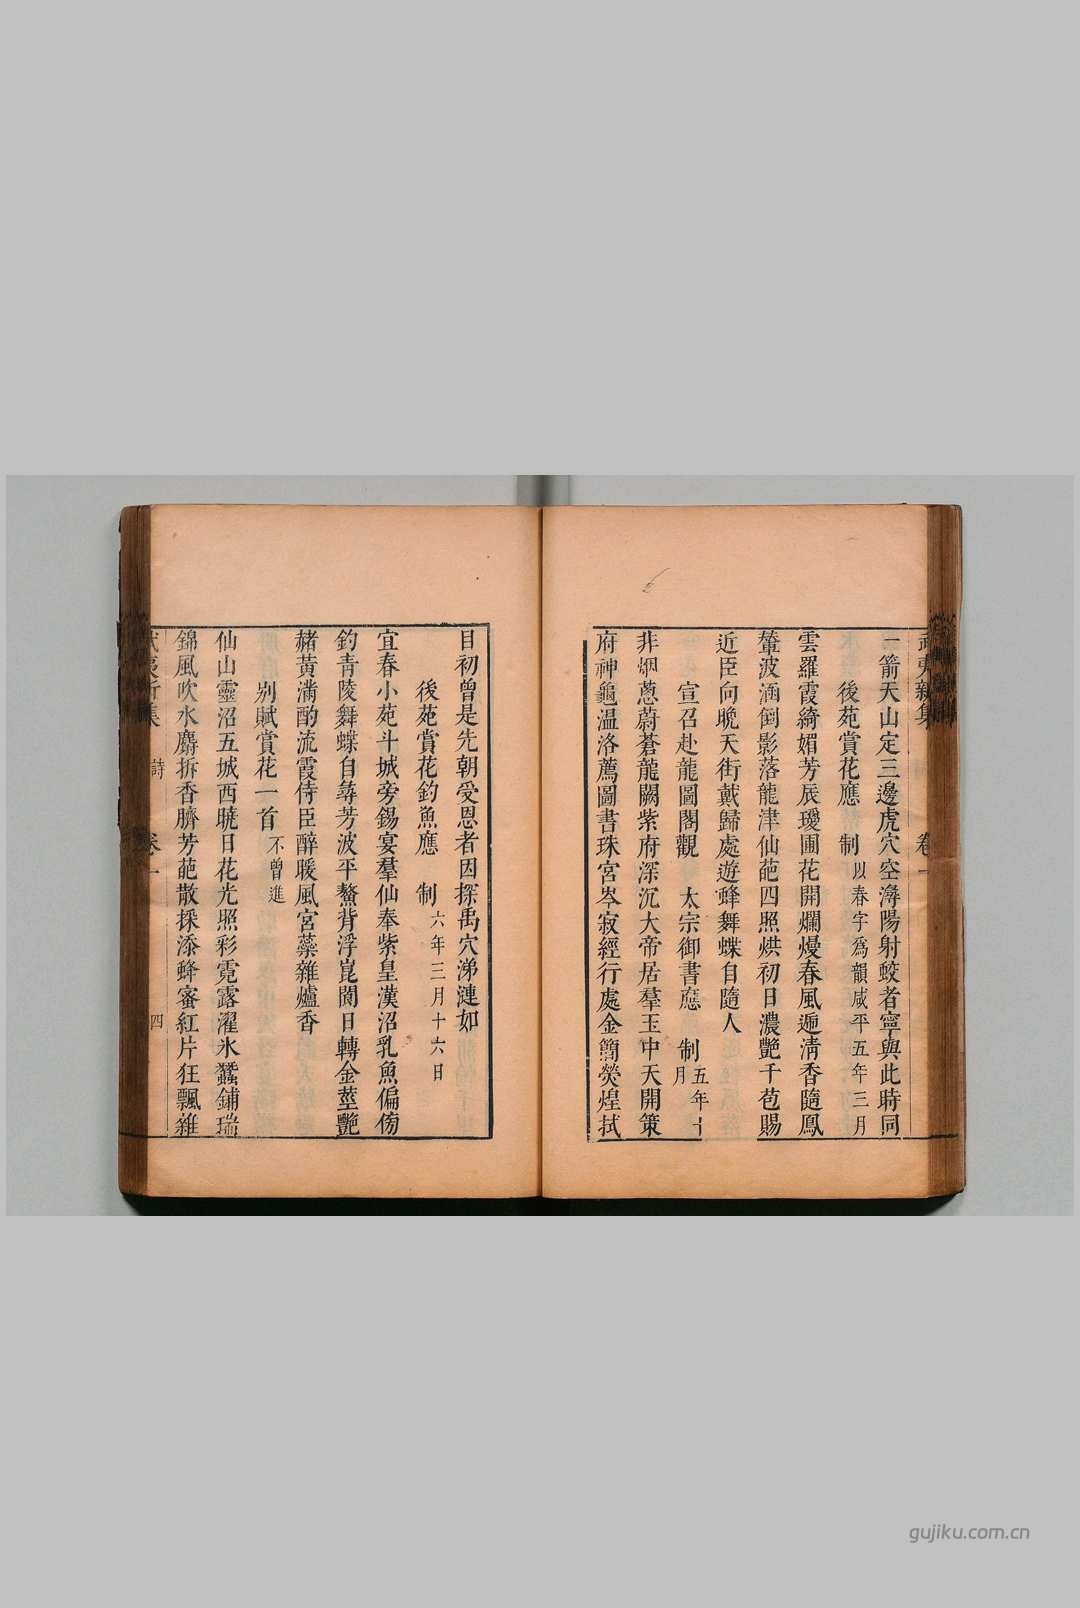 武夷新集 卷一
一箭天山定三邊虎穴空潯陽射蛟者寧與此時同
後苑賞花應 制以春字爲韻咸平五年三月
雲羅霞綺媚芳辰璦圃花開爛熳春風遞清香隨鳳
輦波涵倒影落龍津仙葩四照烘初日濃艷千苞賜
近臣向晚天街戴歸處遊蜂舞蝶自隨人
宣召赴龍圖閣觀 太宗御書應 制五年十月
非烟蔥蔚蒼龍闕紫府深沉大帝居羣玉中天開策
府神龜温洛薦圖書珠宮岑寂經行處金簡熒煌拭
目初曾是先朝受恩者因探禹穴涕漣如
後苑賞花釣魚應 制六年三月十六日
宜春小苑斗城旁錫宴羣仙奉紫皇漢沼乳魚偏傍
釣青陵舞蝶自尋芳波平鰲背浮崑閬日轉金莖艷
赭黃滿酌流霞侍臣醉暖風宮蘂雜爐香
別賦賞花一首不曾進
仙山靈沼五城西曉日花光照彩霓露濯氷蠶鋪瑞
錦風吹水麝拆香臍芳葩散採添蜂蜜紅片狂飄雜
武夷新集 詩 卷一 四
gujiku.com.cn